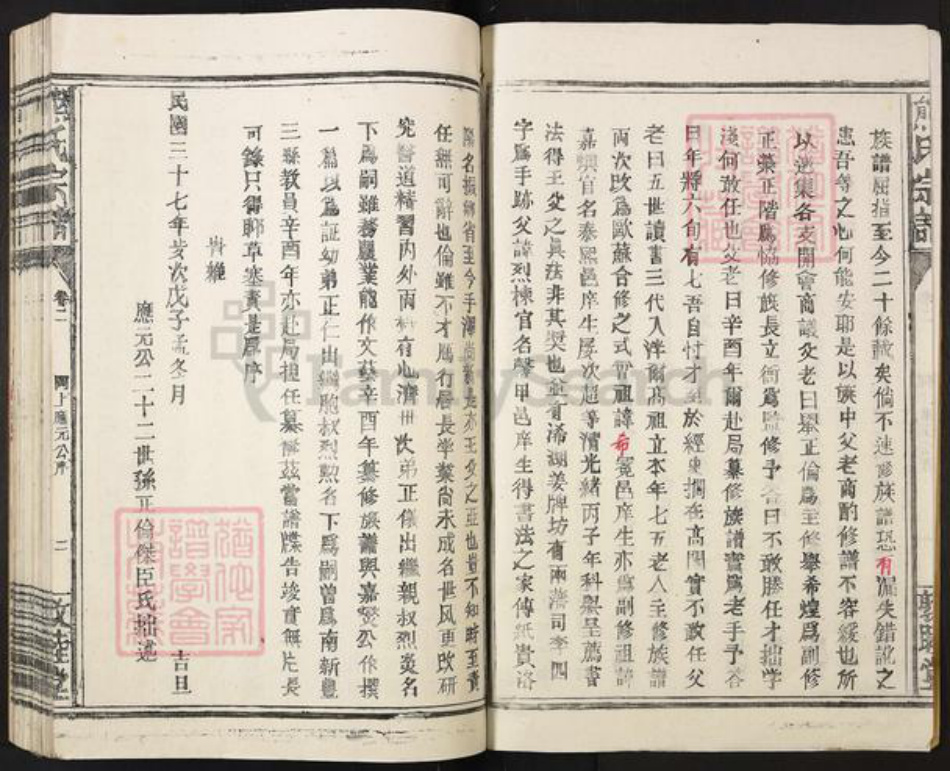 族譜屈指至今二十餘載矣倘不速彥族譜恐有漏失錯訛之
患吾等之心何能安耶是以族中父老商酌修譜不容緩也所
以邀集各支開會商議父老曰舉正倫為主修舉希煌為副修
正藻正階為協修族長立衡為監修予答曰不敢勝任才拙学
淺何敢任也父老曰辛酉年爾赴局纂修族譜實為老手予答
曰年將六旬有七吾自忖才至於經史擱在高閣實不敢任父
老曰五世讀書三代入泮爾高祖立本年七五老人主修族譜
兩次改為歐蘇合修之式曾祖諱希寬邑庠生亦為副修祖諱
嘉興官名泰熙邑庠生屡次超等清光緒丙子年科舉呈薦書
法得王父之真法非其奨也並有浠湖姜牌坊有兩藩司李四
字為手跡父諱烈棟官名聲甲邑庠生得書法之家傳紙貴洛
陽名振鄉省至今手澤尚 是亦王父之亚也豈不知時至責
任無可辭也倫雖不才厲行居長学業尚未成名世风更改研
究醫道精習內外兩科有心濟世次弟正儀出繼親叔烈炎名
下為嗣雖務農業能作文藝辛酉年纂修族譜與嘉燮公作撰
一篇以為証幼弟正仁出繼胞叔烈勲名下為嗣曾為南新豐
三縣教員辛酉年亦赴局担任纂修茲當譜牒告竣實無片長
可錄只得聊草塞責是為序
肯維
民國三十七年歲次戊子孟冬月 吉旦
應元公二十二世孫正倫傑臣氏拙述
熊氏宗譜 卷二 應元公序 二 敦睦堂
熊氏宗譜
敦睦堂
FamilySearch